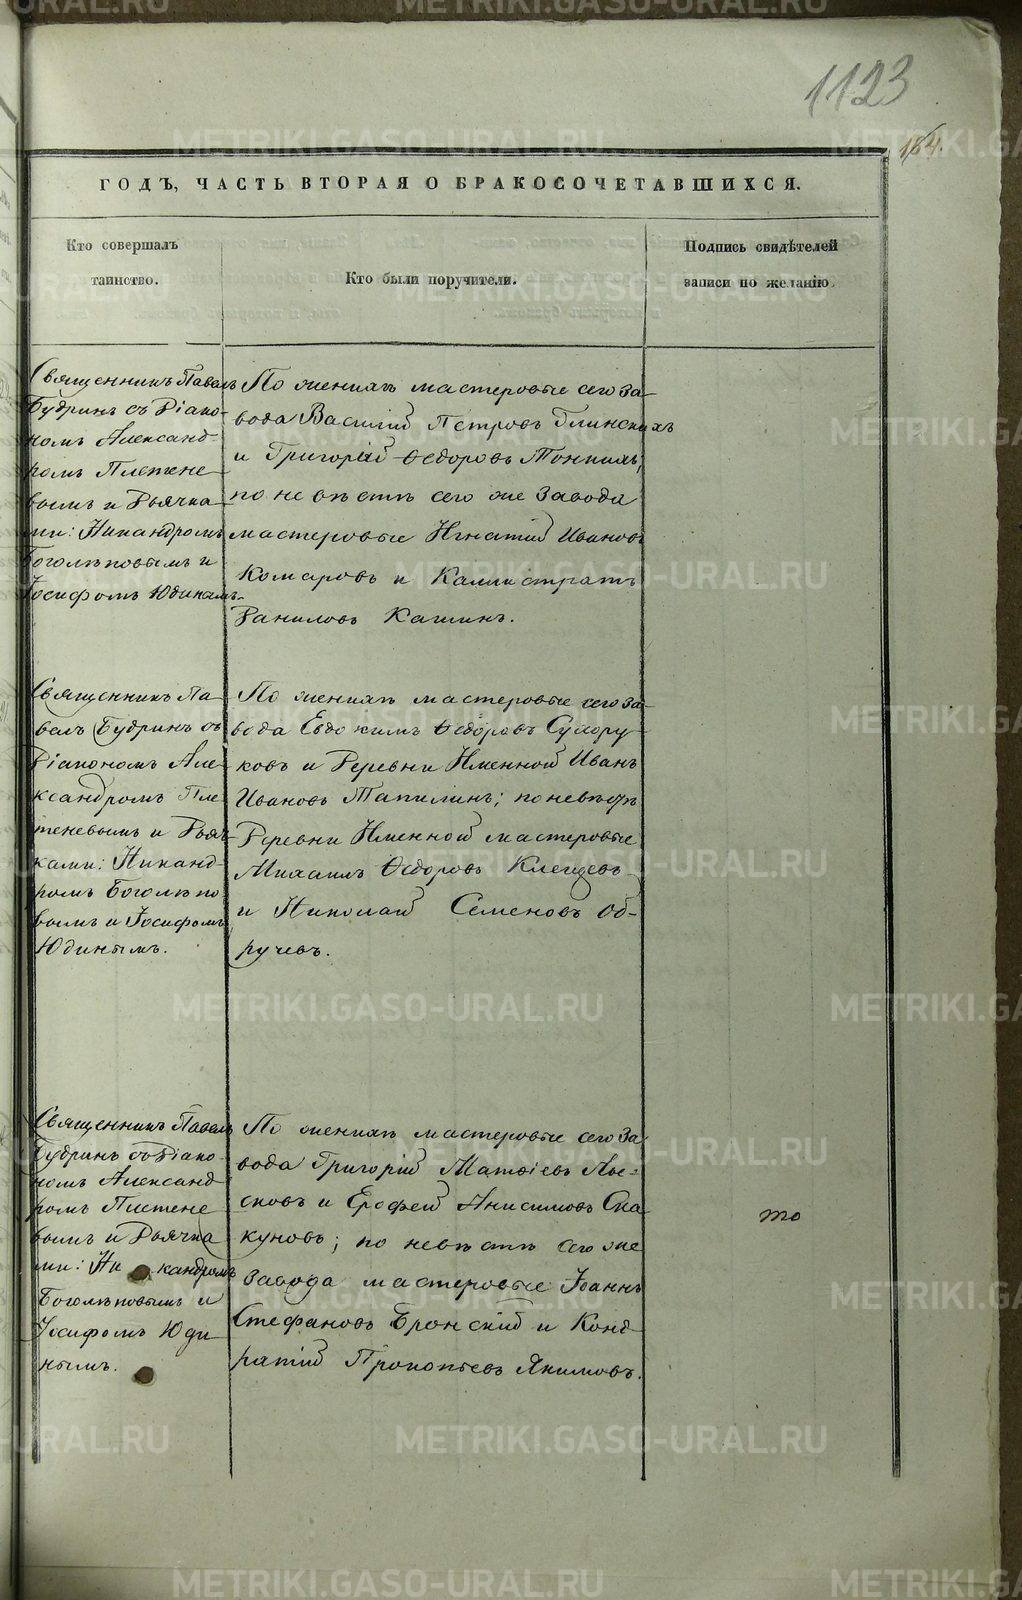 1123
184.
ГОДЪ, ЧАСТЬ ВТОРАЯ О БРАКОСОЧЕТАВШИХСЯ.
Кто совершалъ
таинство.
Кто были поручители.
Подпись свидѣтелей
записи по желанію.
Священникъ Павелъ
Будринъ съ Діако-
номъ Александ-
ромъ Плетене
вымъ и Дьячка
ми: Никандромъ
Боголѣповымъ и
Іосифомъ Юдинымъ.
По женихѣ мастеровые сего за-
вода Василій Петровъ Глинскихъ
и Григорій Ѳедоровъ Тонкихъ;
по невѣстѣ сего же завода
мастеровые Игнатій Ивановъ
Комаровъ и Каллистратъ
Даниловъ Кашинъ.
Священникъ Па-
велъ Будринъ съ
Діакономъ Але-
ксандромъ Пле
теневымъ и Дьяч-
ками: Никанд-
ромъ Боголѣпо
вымъ и Іосифомъ
Юдинымъ.
По женихѣ мастеровые сего за-
вода Евдокимъ Ѳедоровъ Сухору-
ковъ и Деревни Именной Иванъ
Ивановъ Тапилинъ; по невѣстѣ
Деревни Именной мастеровые
Михаилъ Ѳедоровъ Клещевъ
и Николай Семеновъ Об-
ручевъ.
Священникъ Павелъ
Будринъ съ Діако-
номъ Александ
ромъ Плетене
вымъ и Дьячка
ми: Никандромъ
Боголѣповымъ и
Іосифомъ Юди
нымъ.
По женихѣ мастеровые сего за-
вода Григорій Матѳіевъ Лы-
сковъ и Ерофей Анисимовъ Ска
куновъ; по невѣстѣ сего же
завода мастеровые Іоаннъ
Стефановъ Бронскій и Конд-
ратій Прокопьевъ Якимовъ.
то
METRIKI.GASO-URAL.RU